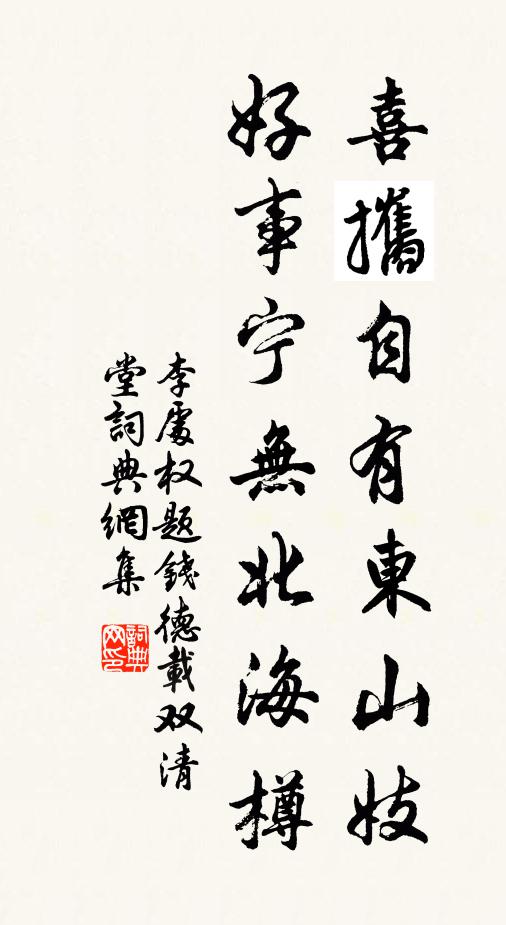 喜攜自有東山妓
好事宁無北海樽
李處权题錢德載双清
堂詞典網集
詞典网印